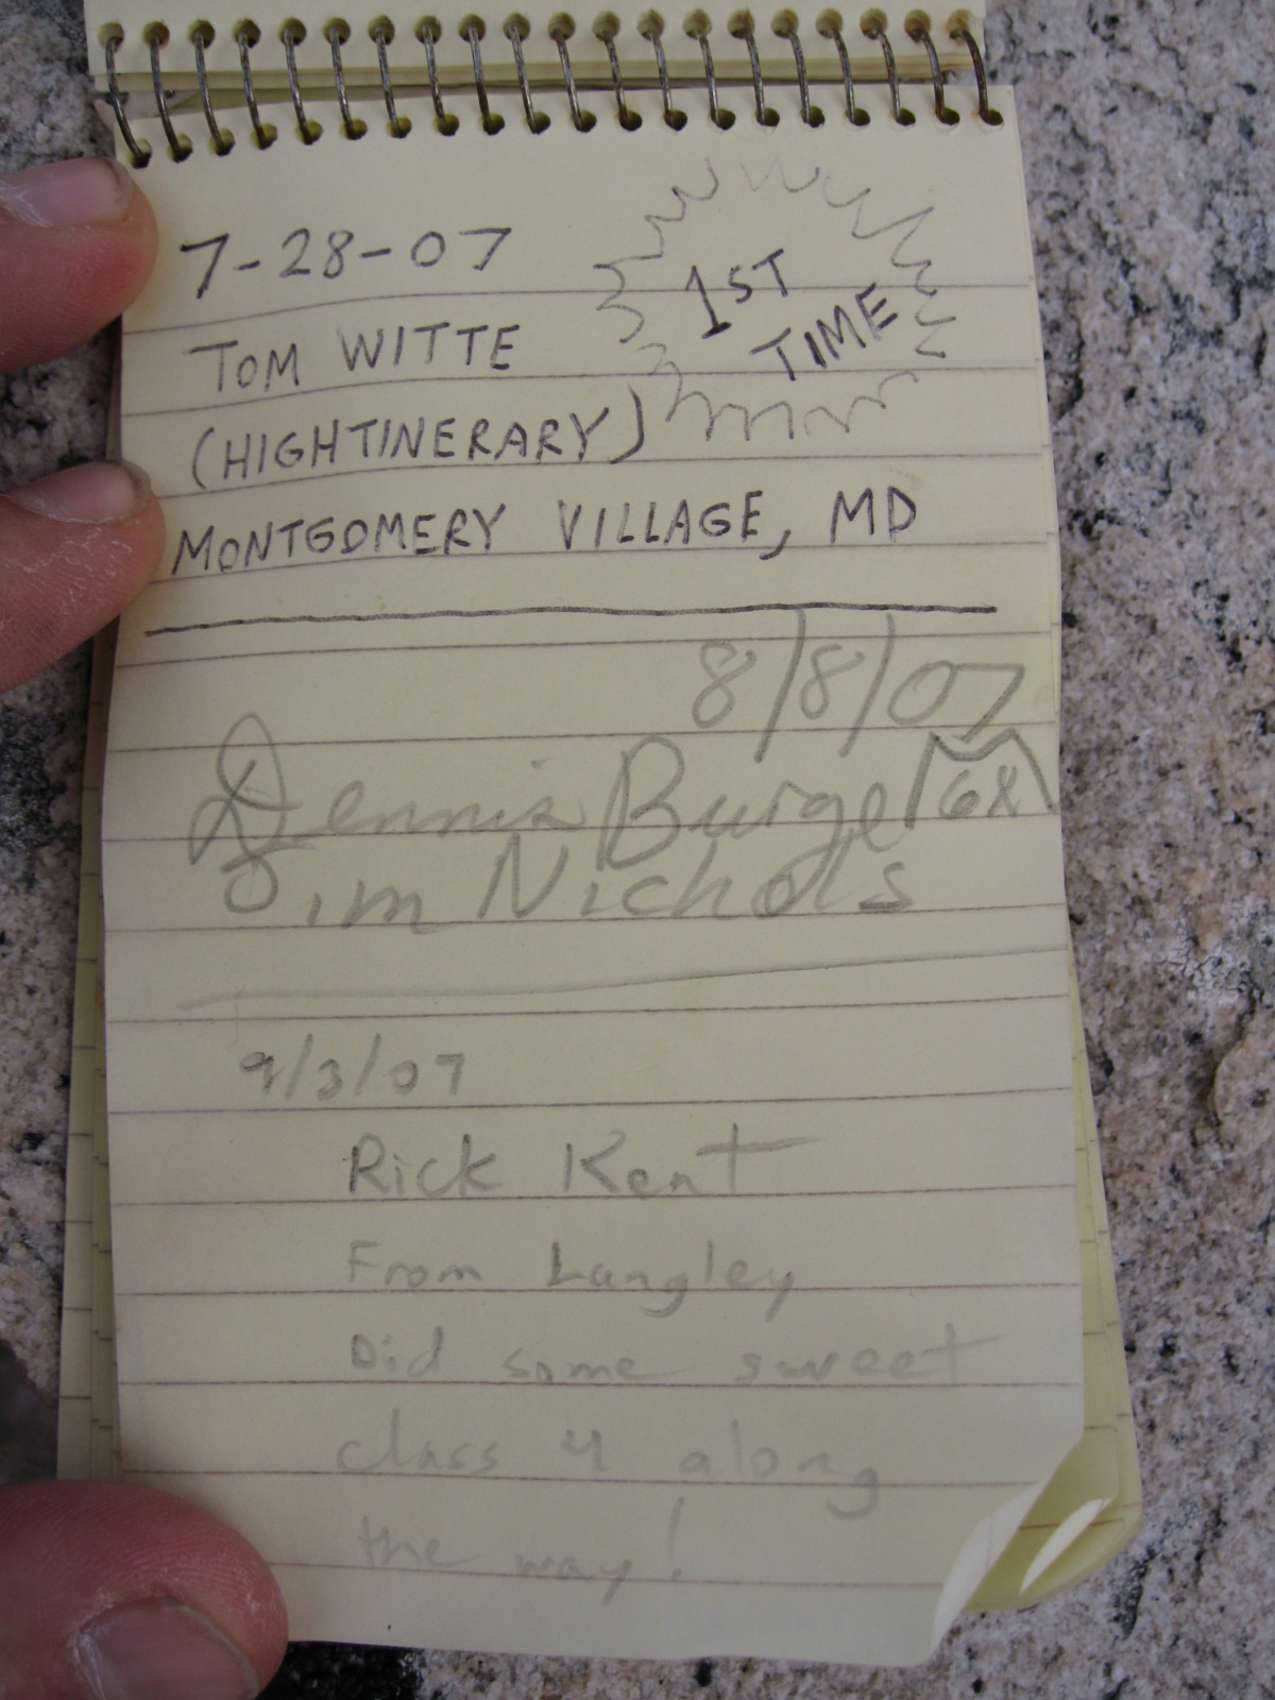 7-28-07
1ST TIME
TOM WITTE
(HIGHTINERARY)
MONTGOMERY VILLAGE, MD
8/8/07
Dennis Burge 68
Jim Nichols
9/3/07
Rick Kent
From Langley
Did some sweet
class 4 along
the way!